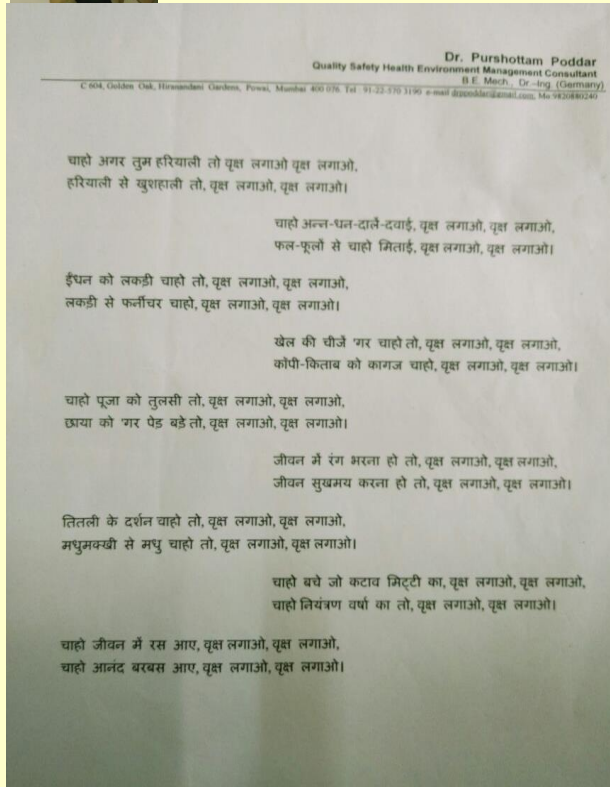 Dr. Purshottam Poddar
Quality Safety Health Environment Management Consultant
B.E. Mech., Dr.-Ing. (Germany)
C 604, Golden Oak, Hiranandani Gardens, Powai, Mumbai 400 076. Tel : 91-22-570 3190 e-mail drppoddar@gmail.com, Mo.9820880240
चाहो अगर तुम हरियाली तो वृक्ष लगाओ वृक्ष लगाओ,
हरियाली से खुशहाली तो, वृक्ष लगाओ, वृक्ष लगाओ।
चाहो अन्न-धन-दालें-दवाई, वृक्ष लगाओ, वृक्ष लगाओ,
फल-फूलों से चाहो मिताई, वृक्ष लगाओ, वृक्ष लगाओ।
ईंधन को लकड़ी चाहो तो, वृक्ष लगाओ, वृक्ष लगाओ,
लकड़ी से फर्नीचर चाहो, वृक्ष लगाओ, वृक्ष लगाओ।
खेल की चीजें 'गर चाहो तो, वृक्ष लगाओ, वृक्ष लगाओ,
कॉपी-किताब को कागज चाहो, वृक्ष लगाओ, वृक्ष लगाओ।
चाहो पूजा को तुलसी तो, वृक्ष लगाओ, वृक्ष लगाओ,
छाया को 'गर पेड़ बड़े तो, वृक्ष लगाओ, वृक्ष लगाओ।
जीवन में रंग भरना हो तो, वृक्ष लगाओ, वृक्ष लगाओ,
जीवन सुखमय करना हो तो, वृक्ष लगाओ, वृक्ष लगाओ।
तितली के दर्शन चाहो तो, वृक्ष लगाओ, वृक्ष लगाओ,
मधुमक्खी से मधु चाहो तो, वृक्ष लगाओ, वृक्ष लगाओ।
चाहो बचे जो कटाव मिट्टी का, वृक्ष लगाओ, वृक्ष लगाओ,
चाहो नियंत्रण वर्षा का तो, वृक्ष लगाओ, वृक्ष लगाओ।
चाहो जीवन में रस आए, वृक्ष लगाओ, वृक्ष लगाओ,
चाहो आनंद बरबस आए, वृक्ष लगाओ, वृक्ष लगाओ।